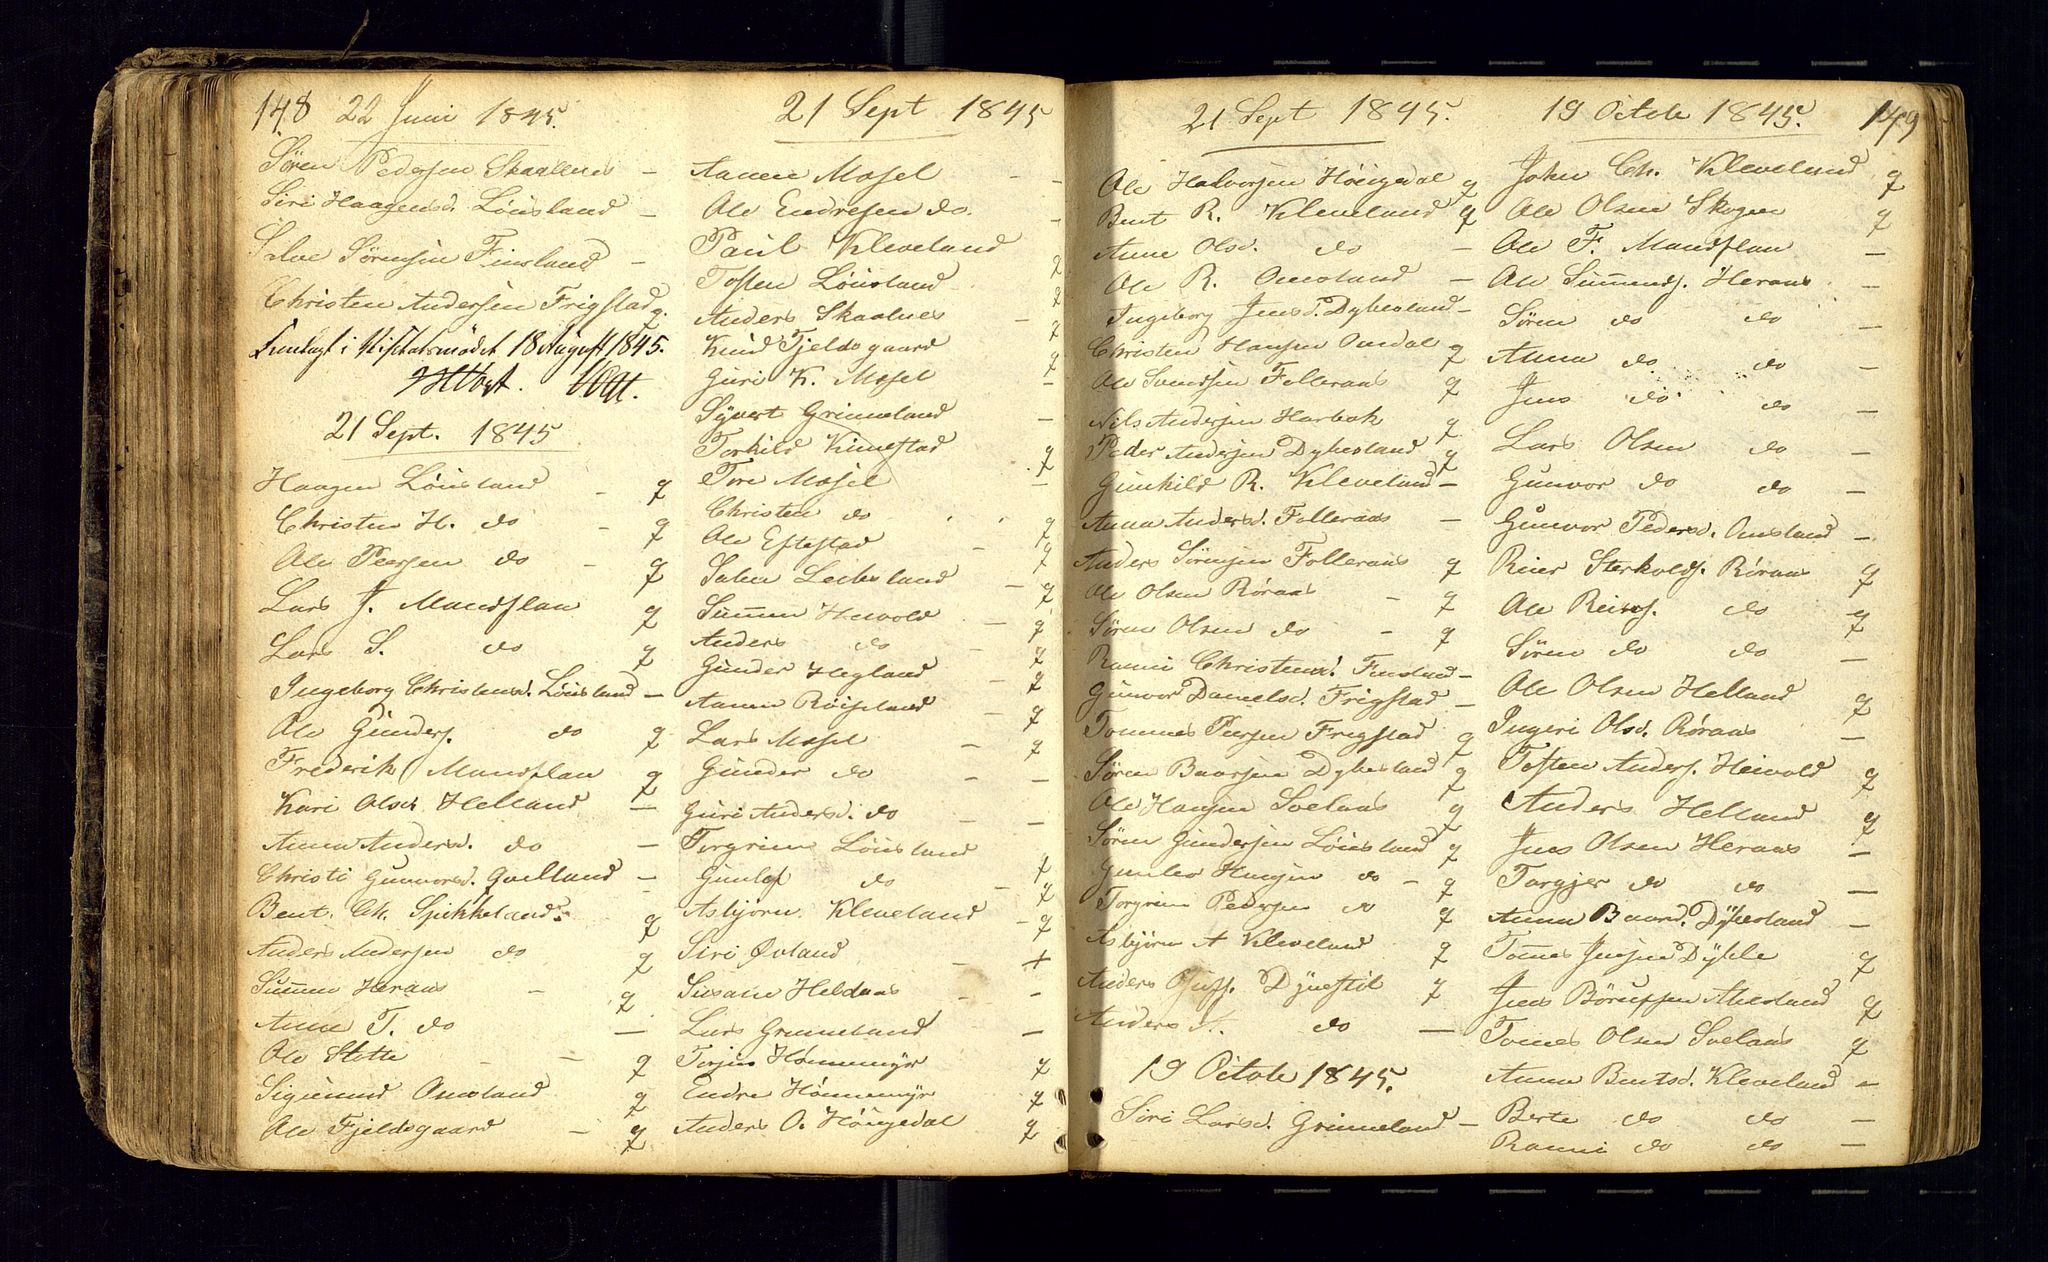 148 22 Juni 1845.
Søren Pedersen Skaalnes –
Siri Haagensd. Löüsland –
Salve Sørensen Finsland –
Christen Andersen Frigstad q.
Fremlagt i 18 August 1845.
21 Sept. 1845
Haagen Löüsland – q
Christen H. do – q
Ole Peersen do – q
Lars J. Mandflau q
Lars S. do q
Ingeborg Christensd. Löüsland –
Ole Gunders. do q
Frederik Mandflau q
Kari Olsd. Helland –
Anna Andersd. do –
Christi Gunvorsd. Qvelland –
Bent Ch. Spikkeland q
Anders Andersen do q
Sümen Heraas – q
Anne T. do –
Ole Stette – – q
Sigmund Omsland q
Ole Fjeldsgaard – q
21 Sept 1845
Aanen Mosel – –
Ole Endresen do. –
Paul Kleveland q
Tosten Löüsland q
Anders Skaalnes – q
Knud Fjeldsgaard q
Guri K. Mosel –
Syvert Grimeland –
Torkild Kimestad q
Tore Mosel –
Christen do q
Ole Eftestad – q
Salve Lechsland – q
Sümen Heivold – q
Anders do – q
Gunder Hegland – q
Aanen Röiseland – q
Lars Mosel – q
Gunder do – –
Guri Andersd. do – –
Torgrim Löüsland q
Gunlef do – q
Asbjørn Kleveland – q
Siri Øvland – +
Susane Heldaas – –
Lars Grimeland –
Torjus Hommemyr q
Endre Hommemyr q
Anders O. Höugedal q
21 Sept 1845.
Ole Halvorsen Höugedal q
Bent R. Kleveland q
Anne Olsd. do –
Ole R. Omsland –
Ingeborg Jensd. Dybesland –
Christen Hansen Omdal q
Ole Svendsen Folleraas q
Nils Andersen Harbak q
Peder Andersen Dybesland q
Gunhild R. Kleveland –
Anna Andersd. Folleraas –
Anders Sørensen Folleraas q
Ole Olsen Røraas – q
Søren Olsen do – q
Ranni Christensd. Finsland –
Gunvor Danielsd. Frigstad –
Tommes Peersen Frigstad q
Søren Baarsen Dybesland q
Ole Hansen Svelaas q
Søren Gundersen Löüsland q
Gunlev Hansen do – q
Torgrim Pedersen do q
Asbjørn A Kleveland q
Anders Dynestil q
Anders A. do –
19 Octobr 1845.
Siri Larsd. Grimeland –
19 Octobr 1845. 149
John Ch. Kleveland q
Ole Olsen Skogen q
Ole F. Mandflau –
Ole Sümends. Heraas –
Søren do do –
Anna do do –
Jens do do –
Lars Olsen do –
Gunvor do do –
Gunvor Pedersd. Omsland –
Reier Sterkolds. Røraas q
Ole Reiers. do q
Søren do do –
Ole Olsen Helland q
Ingeri Olsd. Røraas –
Tosten Anders. Heivold q
Anders Helland q
Jens Olsen Heraas –
Torgjer do do –
Anna Baard. Dybesland –
Tomes Jensen Dyble q
Jens Börufsen Abesland q
Tomes Olsen Svelaas q
Anna Bentsd. Kleveland –
Berte do do –
Ranni do do –